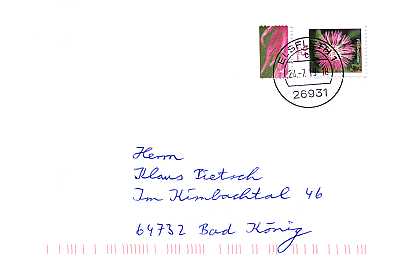 ELSFLETH 1
26931
Herrn
Klaus Pietsch
Im Kimbachtal 46
64732 Bad König